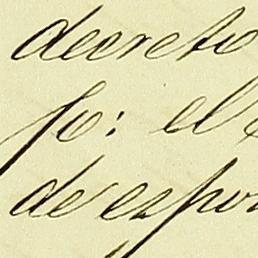 decreto
fo: el
de espor